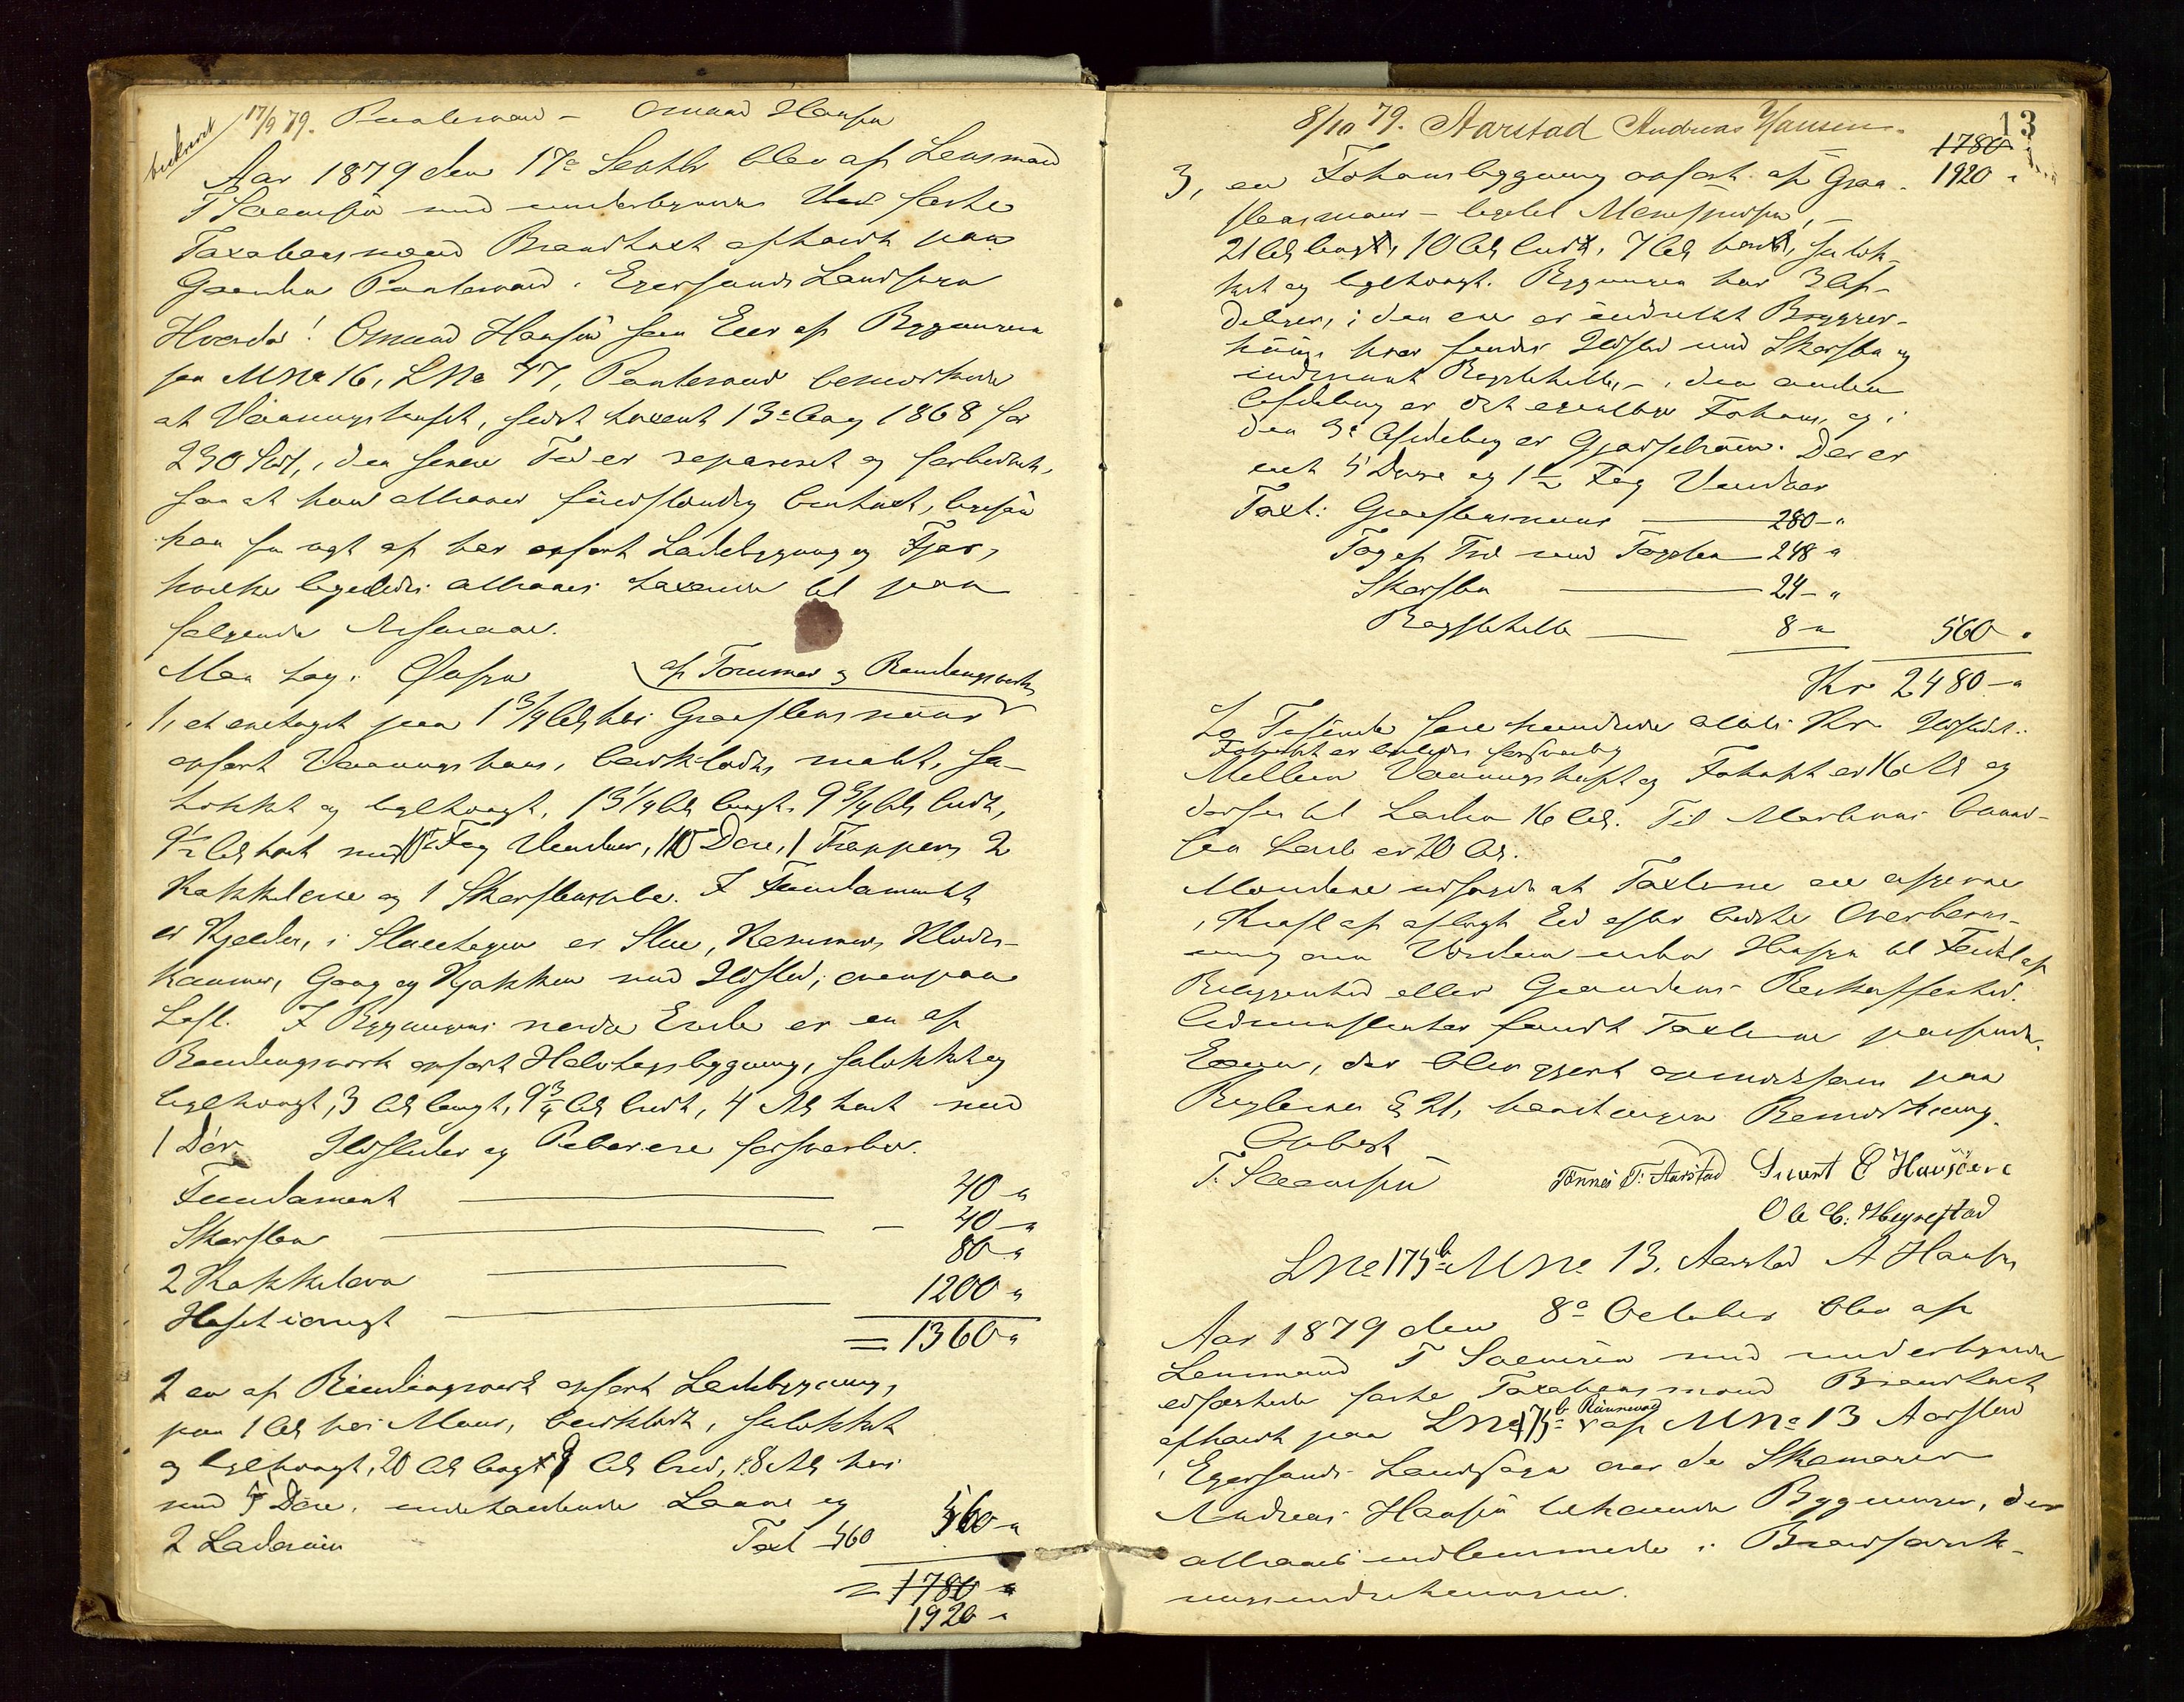 beskrevet
17/9 79. Puntervold - Omund Hansen
Aar 1879 den 17e Septbr blev af Lensmand
T Svensen med underbemte faste
Taxationsmænd Brandtaxt afholdt paa
Gaarden Puntervold i Egersunds Landsogn
Hvorda! Omund Hansen som Eier af Bygningerne
paa MNo 16, LNo 47, Puntervold bemærkede
at Vaaningshuset, sidst taxeret 13e Aug 1868 for
230 Spd, i den senere Tid er repareret og forbedret,
saa at han attraaer fuldstændig Omtaxt, ligesom
han for nyt af har opført Ladebygning og Fjøs,
hvilke ligeledes attraaes taxerede til paa
følgende Ansvaar.
Man tog i Øiesyn af Tømmer og Bindingsverk
1, et enetages paa 1 3/4 Al høi Graastensmuur
opført Vaaningshuus, bordklædt, malt, su-
trækket og teglhængt, 13 1/4 Al langt, 9 3/4 Al bredt,
9 1/2 Al høit med 10 Fag Vinduer, 10 Døre, 1 Trapper, 2
Kakkelovne og 1 Skorstenspibe. I Fundamentet
er Kjælder, i Stueetagen er Stue, Kammer, Klæde-
kammer, Gang og Kjøkken med Ildsted, ovenpaa
Loft. I Bygningens nordre Ende er en af
Bindingsverk opført Halvtagsbygning, sutækket og
teglhængt, 3 Al langt, 9 3/4 Al bredt, 4 Al høit med
1 Dør. Ildsteder og Piber ere forsvarlige.
Fundament 40 "
Skorsten - 40 "
2 Kakkelovne 80 "
Huset iøvrigt 1200 "
= 1360 "
2 en af Bindingsverk opført Ladebygning,
paa 1 Al høi Muur, bordklædt, sutækket
og teglhængt, 20 Al langt 9 Al bred, 8 Al høi
med 5 Døre, indeholdende Laave og
2 Laderum Taxt 560 560 "
= 1780 "
1920 "
13
8/10 79. Aarstad Andreas Hansen.
1780
1920 "
3, en Fæhuusbygning opført af Graa-
steensmuur - lagdet
21 Al langt, 10 Al bredt, 7 Al høit, sutæk-
ket og teglhængt. Bygningen har 3 Af-
delinger, i den ene er indrettet Brygger-
huus hvor findes Ildsted med Skorsten og
indmuret Bryggekittel, - i den anden
Afdeling er det egentlige Fæhuus, og i
den 3e Afdeling er Gjødselrum. Der er
ialt 5 Døre og 1 1/2 Fag Vinduer
Taxt: Graastensmuur 280 - "
Tag af Træ med Tagsten 248 "
Skorsten 24 - "
Bryggekittel 8 " 560 "
Kr 2480 - "
To Tusinde fire hundrede otteti Kr. Ildstedet i
Fæhuset er ligeledes forsvarlig
Mellem Vaaningshuset og Fæhuset er 16 Al og
derfra til Laden 16 Al. Til Martinus Omund-
sen Lade er 20 Al.
Mændene udsagde at Taxterne ere afgivne
i Kraft af aflagt Eed efter bedste Overbevis-
ning om Værdien uden Hensyn til Feil af
Beliggenhed eller Grundens Beskaffenhed.
Administrator fandt Taxterne passende.
Eieren, der blev gjort opmærksom paa
Reglerne § 21, havde ingen Bemærkning.
Oplæst
T. Svensen Tønnes T: Aarstad Sivert E Hausøere
Ole C: Hegrestad
LNo 175 b MNo 13, Aarstad A Hansen
Aar 1879 den 8e October blev af
Lensmand T Svensen med underbemte
edfæstede faste Taxationsmænd Brandtaxt
afholdt paa LNo 175 b Rünnevold af MNo 13 Aarstad
i Egersunds Landsogn over de Skomager
Andreas Hansen tilhørende Bygninger, der
attraaes indlemmede i Brandforsik-
ringsindretningen.